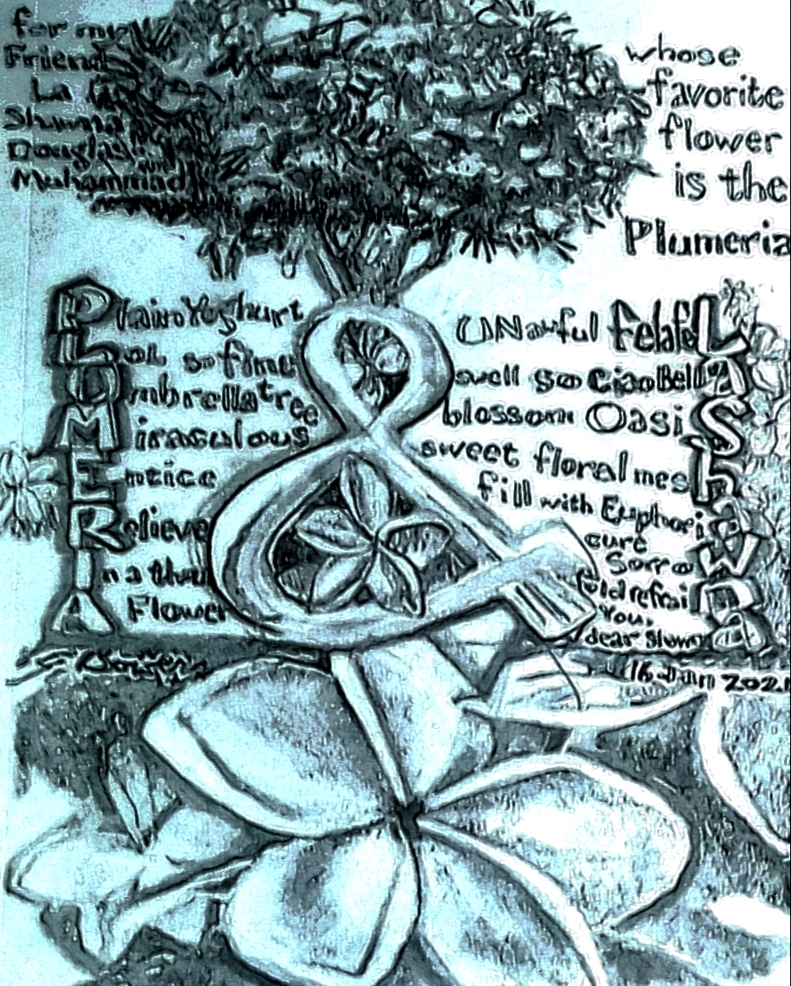 for my
Friend
La
Douglas
Muhammad
whose
favorite
flower
is the
Plumeria
Plain Yoghurt
so fine
Umbrella tree
Miraculous
Entice
Relieve
In a
A Flower
UNawful Felafel
swell so Ciao Bella
blossom Oasis
sweet floral mesh
fill with Euphori
cure
Sorrow
You,
dear
16 Jan 2021